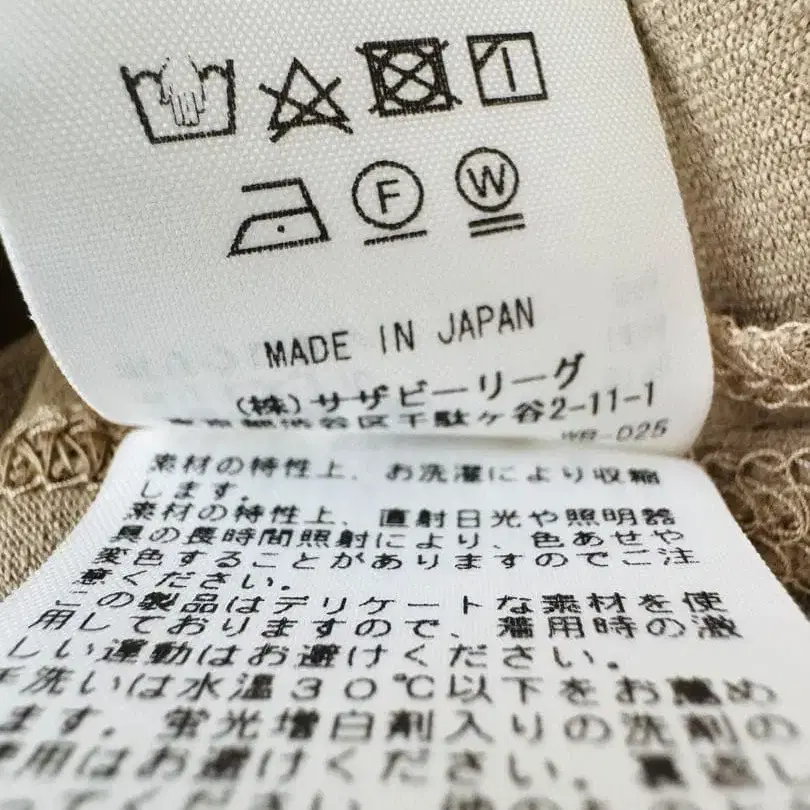 F
W
MADE IN JAPAN
(株)サザビーリーグ
東京都渋谷区千駄ヶ谷2-11-1
WB-D25
素材の特性上、お洗濯により収縮
します。
素材の特性上、直射日光や照明器
具の長時間照射により、色あせや
変色することがありますのでご注
意ください。
この製品はデリケートな素材を使
用しておりますので、着用時の激
しい運動はお避けください。
手洗いは水温30℃以下をお薦め
ます。蛍光増白剤入りの洗剤の
使用はお避けください。裏返し